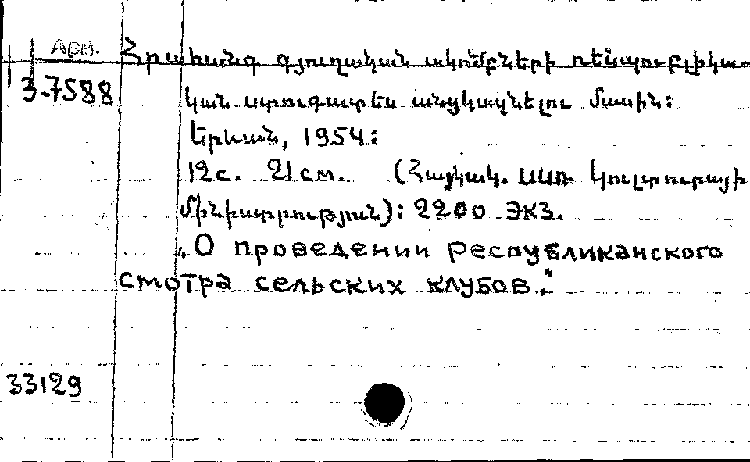 Арм.
3-7588
Հրահանգ գյուղական ակումբների ռեսպուբլիկա-
կան ստուգատես անցկացնելու մասին:
Երևան, 1954:
12 с. 21 см. (Հայկակ. ՍՍՌ Կուլտուրայի
մինիստրություն): 2200 экз.
„О проведении республиканского
смотра сельских клубов."
33129